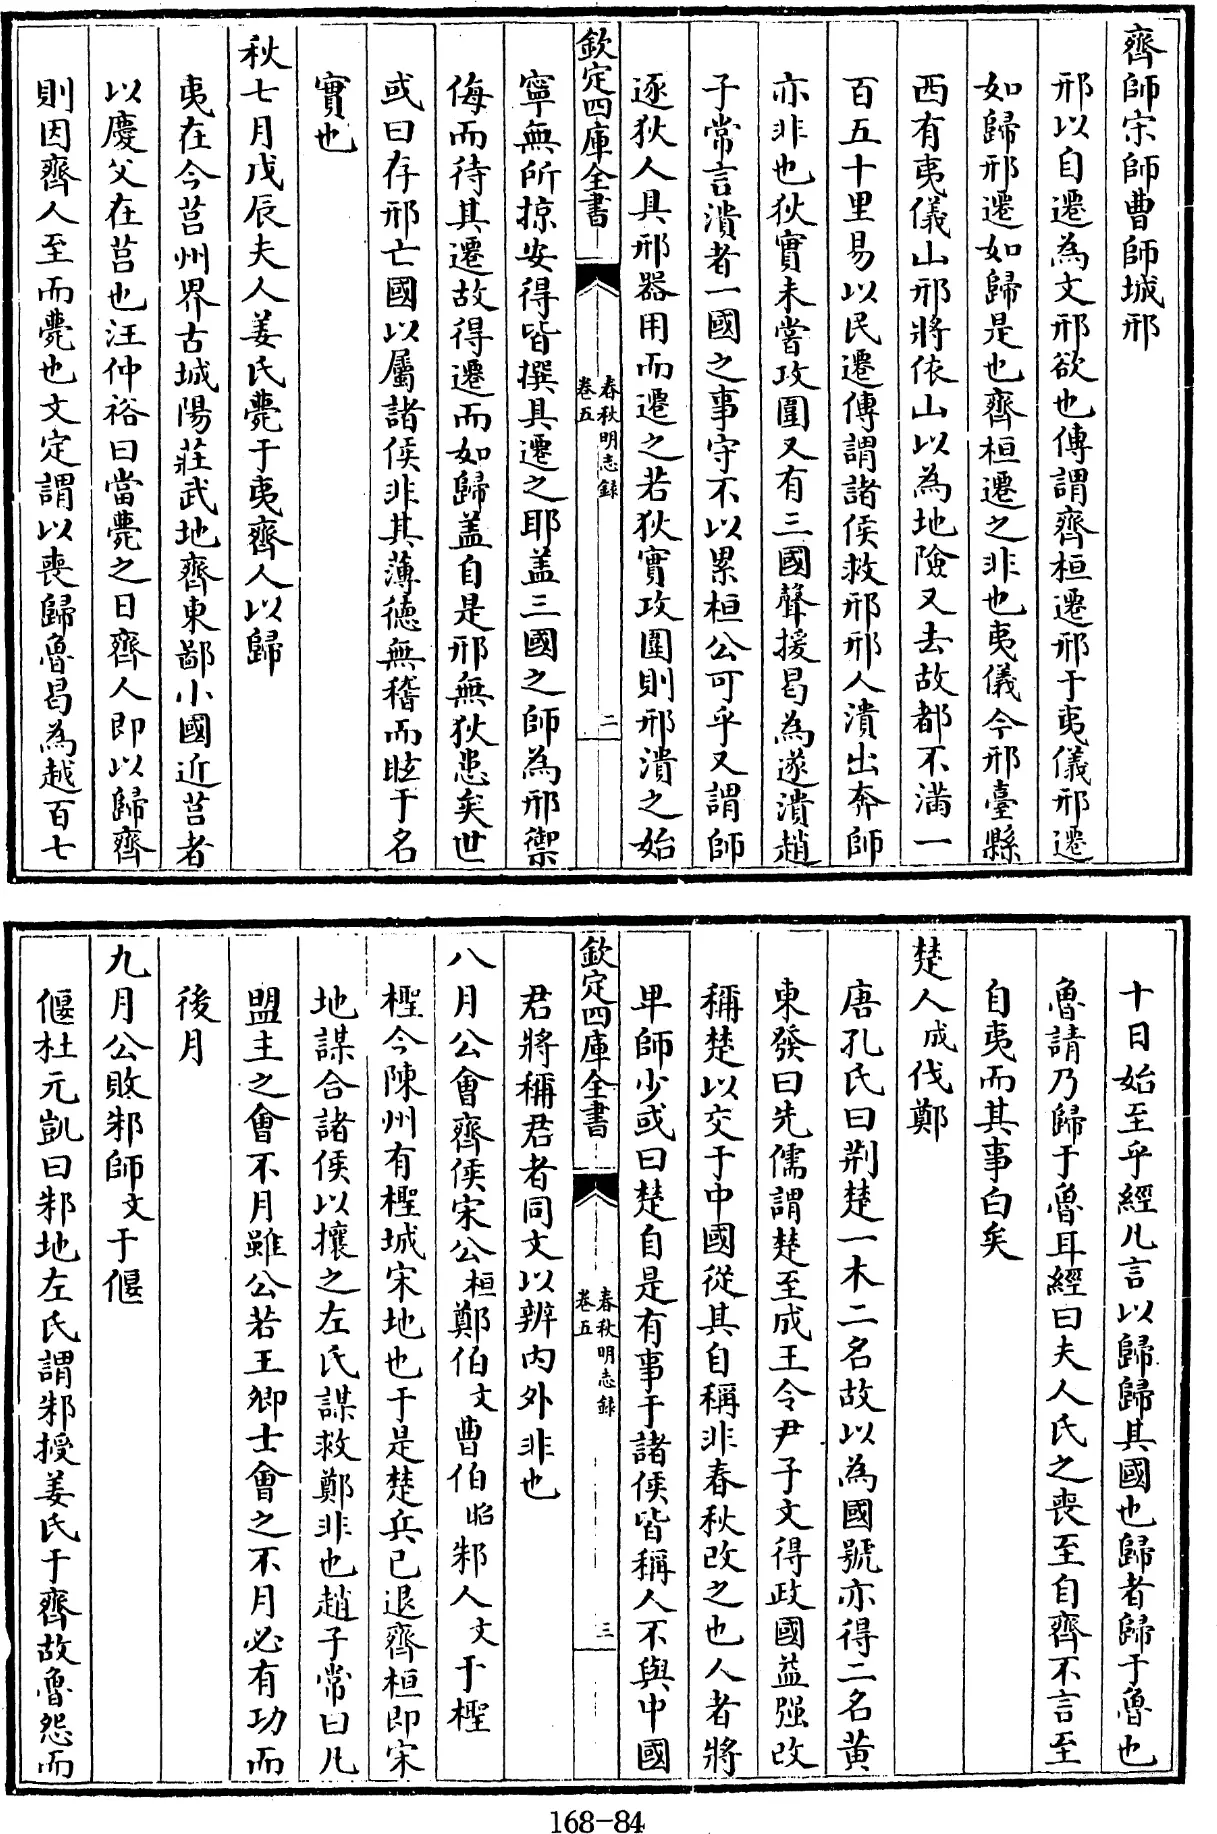 齊師宋師曹師城邢
邢以自遷為文邢欲也傳謂齊桓遷邢于夷儀邢遷
如歸邢遷如歸是也齊桓遷之非也夷儀今邢臺縣
西有夷儀山邢將依山以為地險又去故都不滿一
百五十里易以民遷傳謂諸侯救邢邢人潰出奔師
亦非也狄實未嘗攻圍又有三國聲援曷為遂潰趙
子常言潰者一國之事守不以累桓公可乎又謂師
逐狄人具邢器用而遷之若狄實攻圍則邢潰之始
欽定四庫全書
春秋明志錄
卷五
二
寧無所掠安得皆撰具遷之耶盖三國之師為邢禦
侮而待其遷故得遷而如歸盖自是邢無狄患矣世
或曰存邢亡國以屬諸侯非其薄德無稽而眩于名
實也
秋七月戊辰夫人姜氏薨于夷齊人以歸
夷在今莒州界古城陽莊武地齊東鄙小國近莒者
以慶父在莒也汪仲裕曰當薨之日齊人即以歸齊
則因齊人至而薨也文定謂以喪歸魯曷為越百七
十日始至乎經凡言以歸歸其國也歸者歸于魯也
魯請乃歸于魯耳經曰夫人氏之喪至自齊不言至
自夷而其事白矣
楚人成伐鄭
唐孔氏曰荆楚一木二名故以為國號亦得二名黄
東發曰先儒謂楚至成王令尹子文得政國益强改
稱楚以交于中國從其自稱非春秋改之也人者將
早師少或曰楚自是有事于諸侯皆稱人不與中國
欽定四庫全書
春秋明志錄
卷五
三
君將稱君者同文以辨内外非也
八月公會齊侯宋公桓鄭伯文曹伯昭邾人文于檉
檉今陳州有檉城宋地也于是楚兵已退齊桓即宋
地謀合諸侯以攘之左氏謀救鄭非也趙子常曰凡
盟主之會不月雖公若王卿士會之不月必有功而
後月
九月公敗邾師文于偃
偃杜元凱曰邾地左氏謂邾授姜氏于齊故魯怨而
168-84